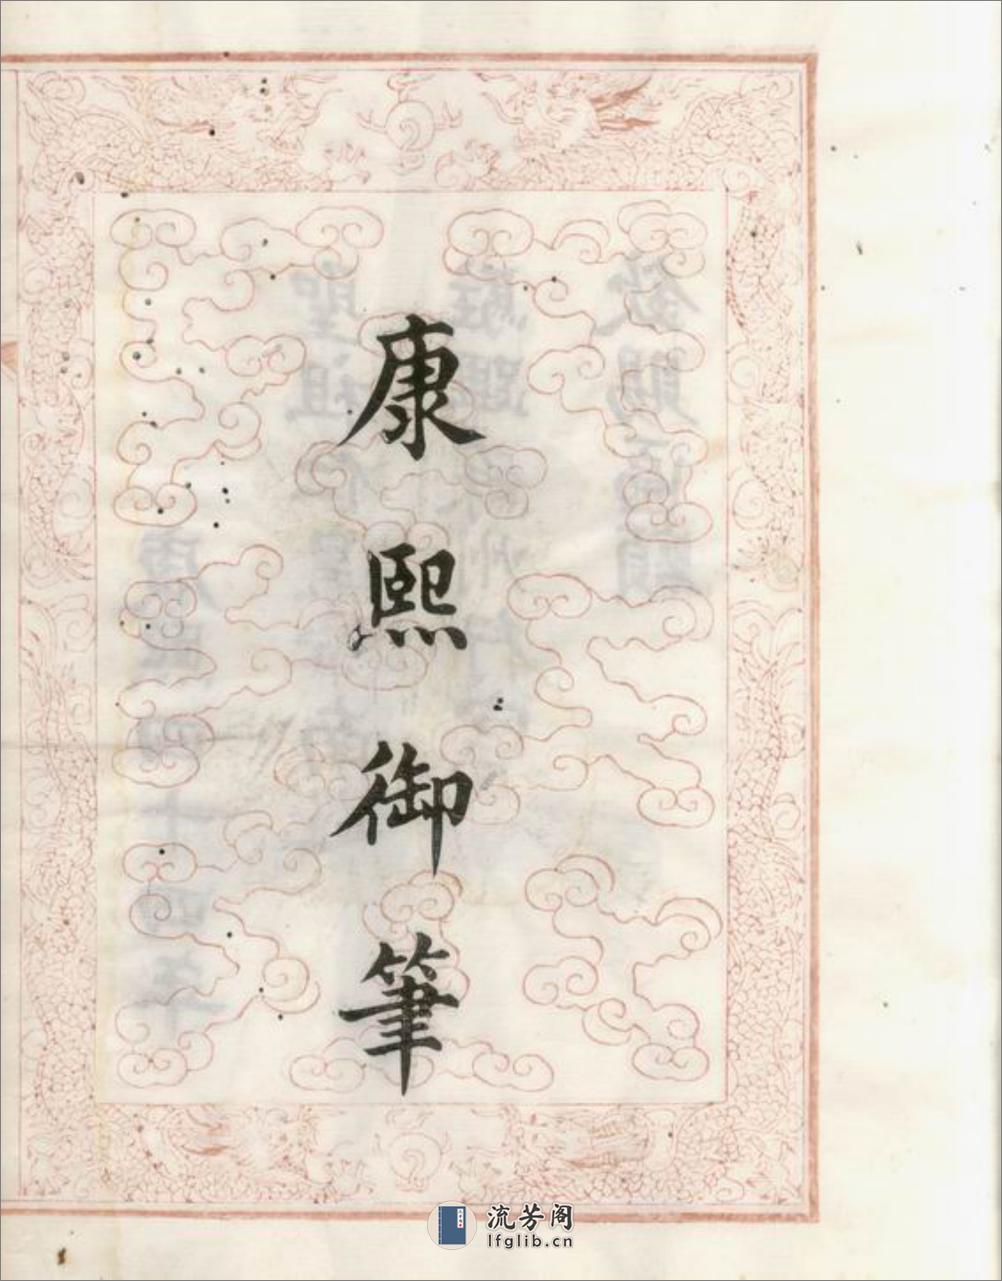 康熙御筆
流芳阁
lfglib.cn